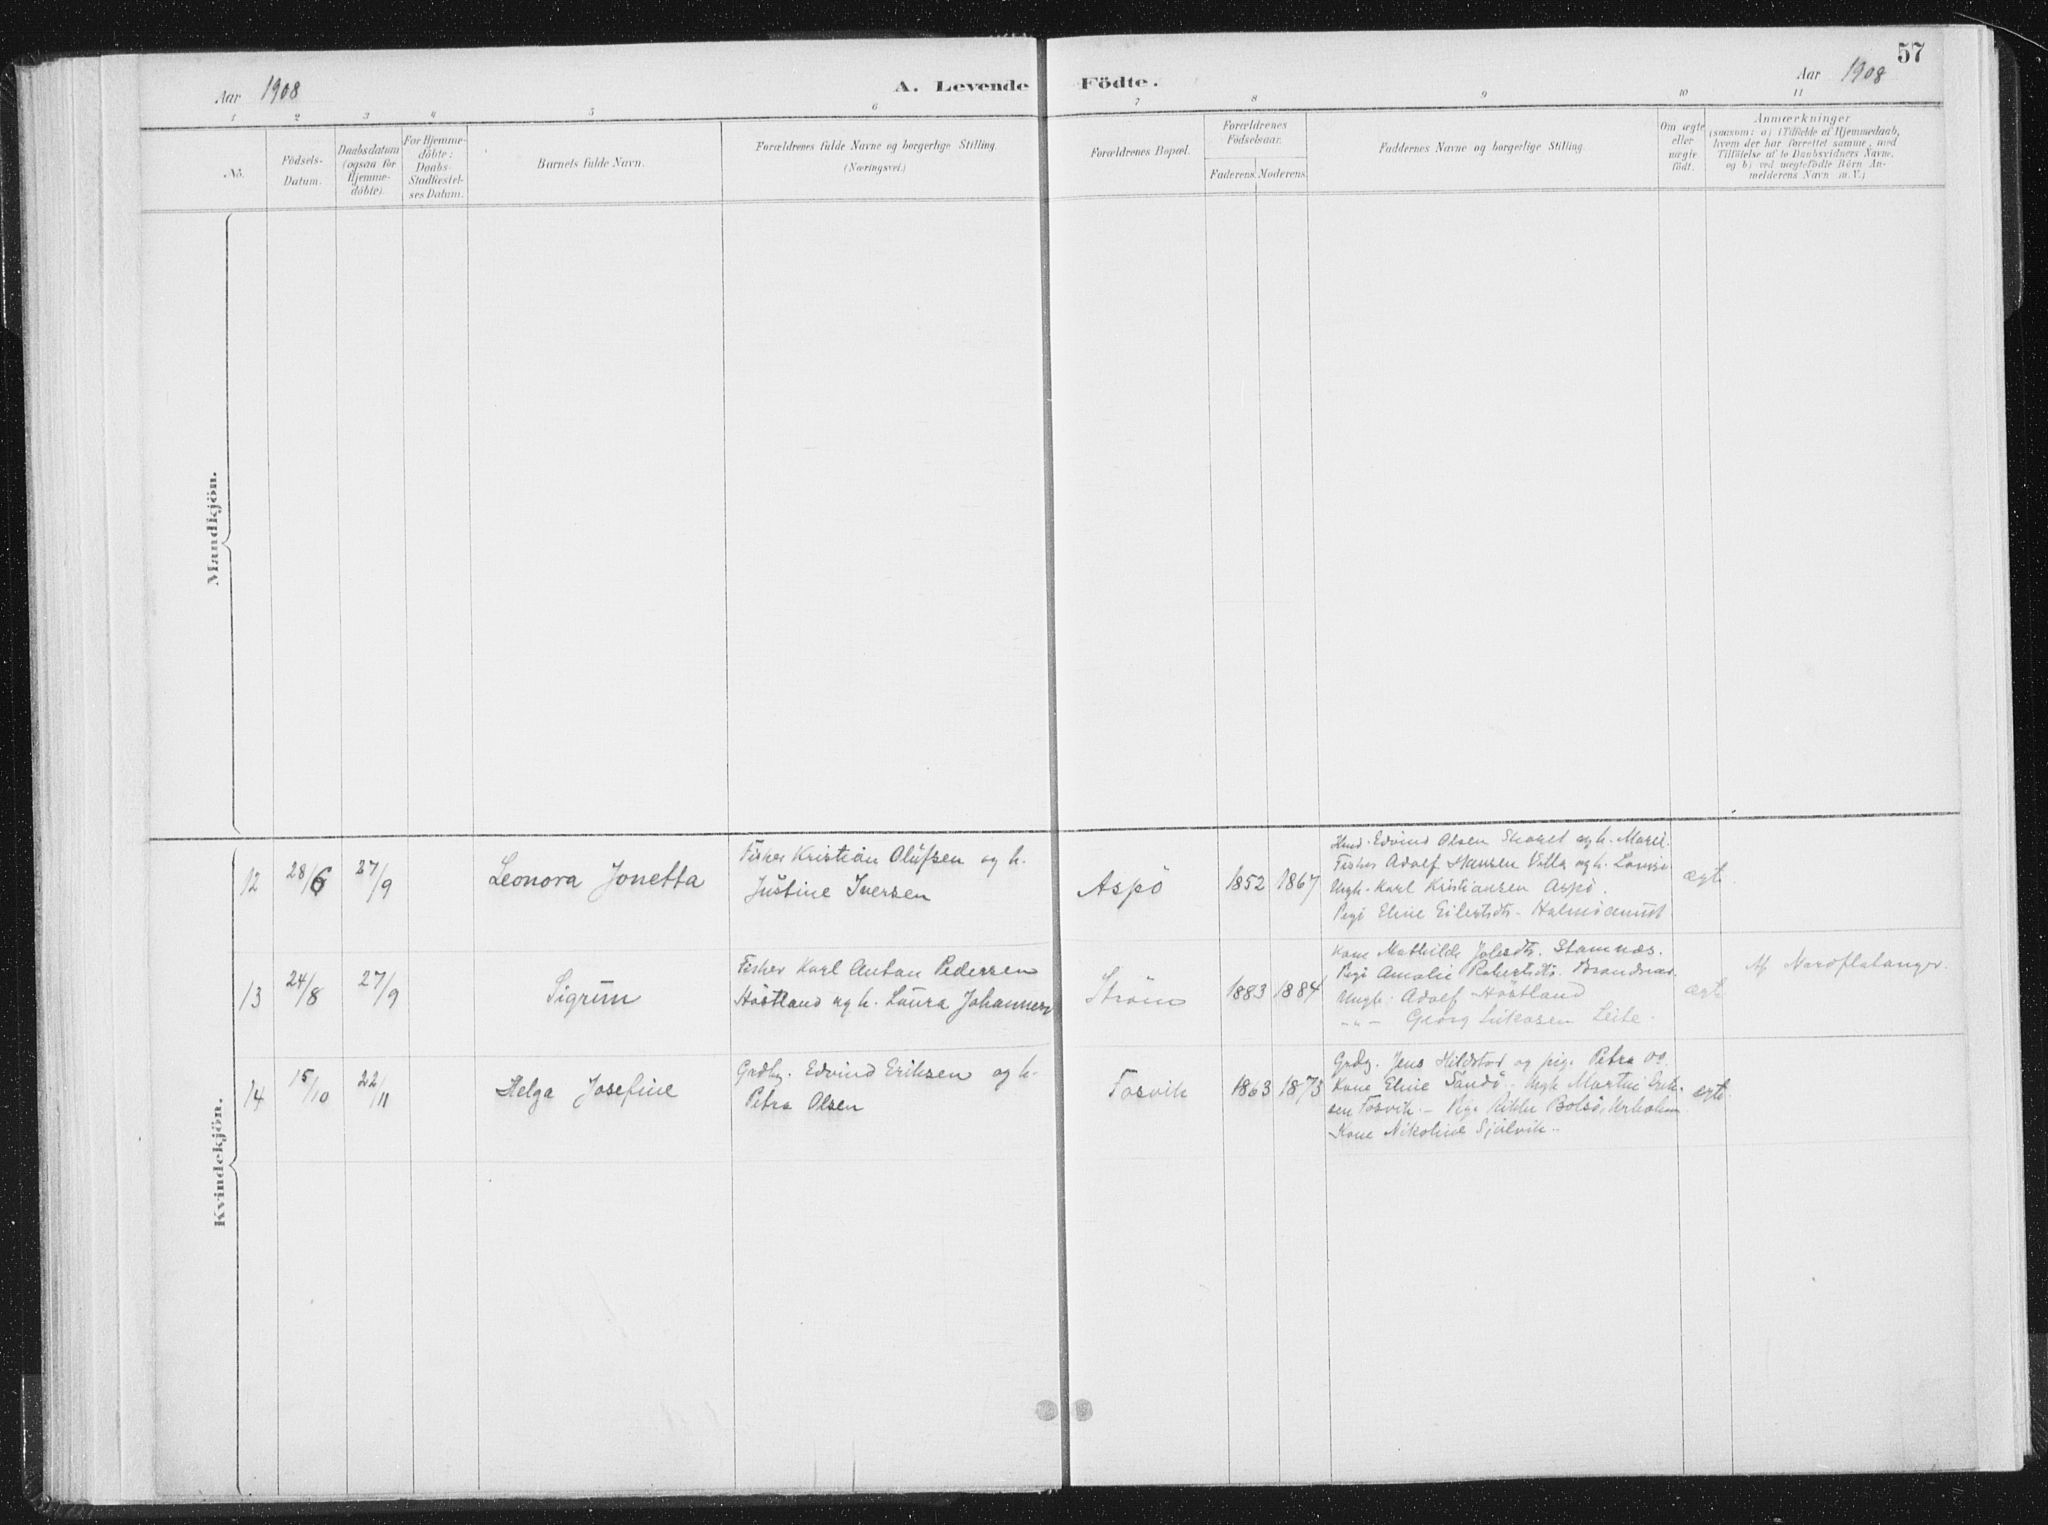 57
Aar 1908
A. Levende Födte.
Aar 1908
1 2 3 4 5 6 7 8 9 10 11
No.
Födsels-
Datum.
Daabsdatum
(ogsaa for
Hjemme-
döbte).
For Hjemme-
döbte:
Daabs-
Stadfæstel-
ses Datum.
Barnets fulde Navn.
Forældrenes fulde Navne og borgerlige Stilling.
(Næringsvei.)
Forældrenes Bopæl.
Forældrenes
Födselsaar.
Faderens. Moderens.
Faddernes Navne og borgerlige Stilling.
Om ægte
eller
uægte
födt.
Anmærkninger
(saasom: a) i Tilfælde af Hjemmedaab,
hvem der har forrettet samme, med
Tilföielse af to Daabsvidners Navne,
og b) ved uegtefödte Börn An-
melderens Navn m. V.)
Mandkjön.
Kvindekjön.
12 28/6 27/9 Leonora Jonetta
Fisker Kristian Olufsen og h.
Justine Iversen
Aspö 1852 1867
Edvind Olsen og h.
Fisker Adolf Hansen Villa og h.
Ungk. Karl Kristiansen Aspö.
Pige Eline
ægte.
13 24/8 27/9 Sigrun
Fisker Karl Anton Pedersen
Höstland og h. Laura Johannesen
Ström 1883 1884
Kone Mathilde Stamnæs.
Pige Amalie
Ungk. Adolf Höstland
-"- Georg Lukasen Leite.
ægte
Af Nordflatanger.
14 15/10 22/11 Helga Josefine
Grdbg. Edvind Eriksen og h.
Petra Olsen
Fosvik 1863 1873
Grdbg. Jens Hildstad og pige Petra do.
Kone Eline Sandö. Ungk. Martin Erik-
sen Fosvik. - Pige Bolsö,
Kone Nikoline
ægte.